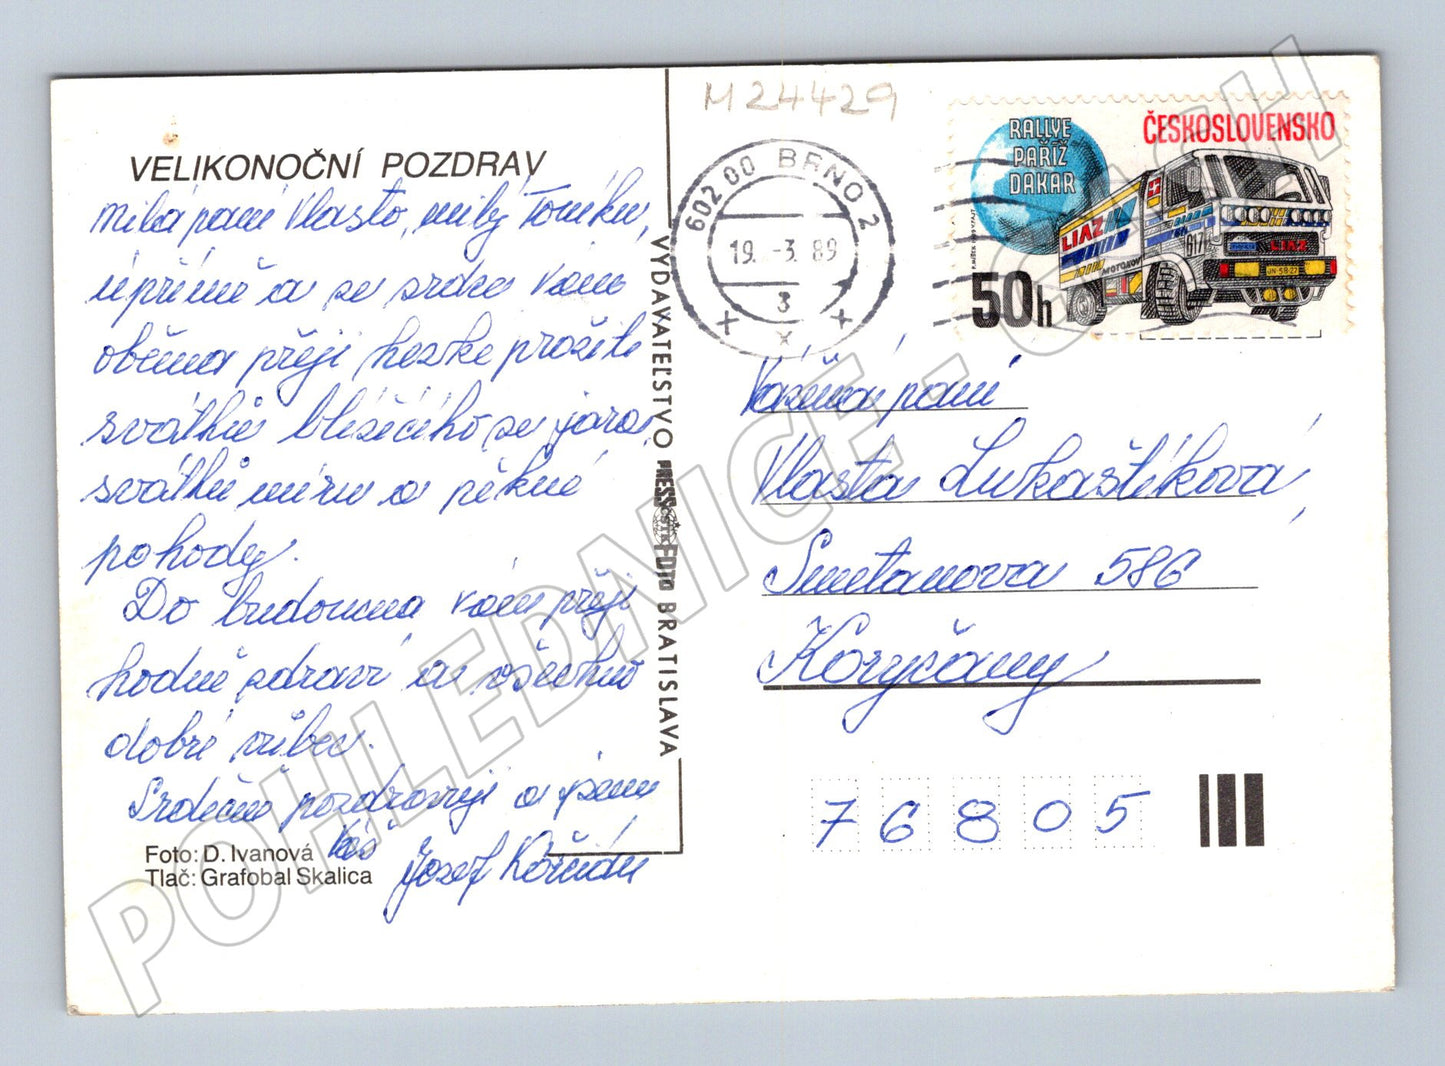 M 24429
VELIKONOČNÍ POZDRAV
Milá paní Vlasto, milý Toníku,
upřímně a ze srdce Vám
oběma přeji hezké prožití
svátků blížícího se jara,
svátků míru a pěkné
pohody.
Do budoucna Vám přeji
hodně zdraví a všechno
dobré vůbec.
Srdečně pozdravuji a jsem
Váš
Josef
Foto: D. Ivanová
Tlač: Grafobal Skalica
VYDAVATEĽSTVO PRESSFOTO BRATISLAVA
602 00 BRNO 2
19. -3. 89
3
x
ČESKOSLOVENSKO
RALLYE
PAŘÍŽ
DAKAR
50h
LIAZ
MOTOKOV
LIAZ
Vážená paní
Vlasta Lukaštíková
Smetanova 586
Koryčany
76805
POHLEDNICE - CASH